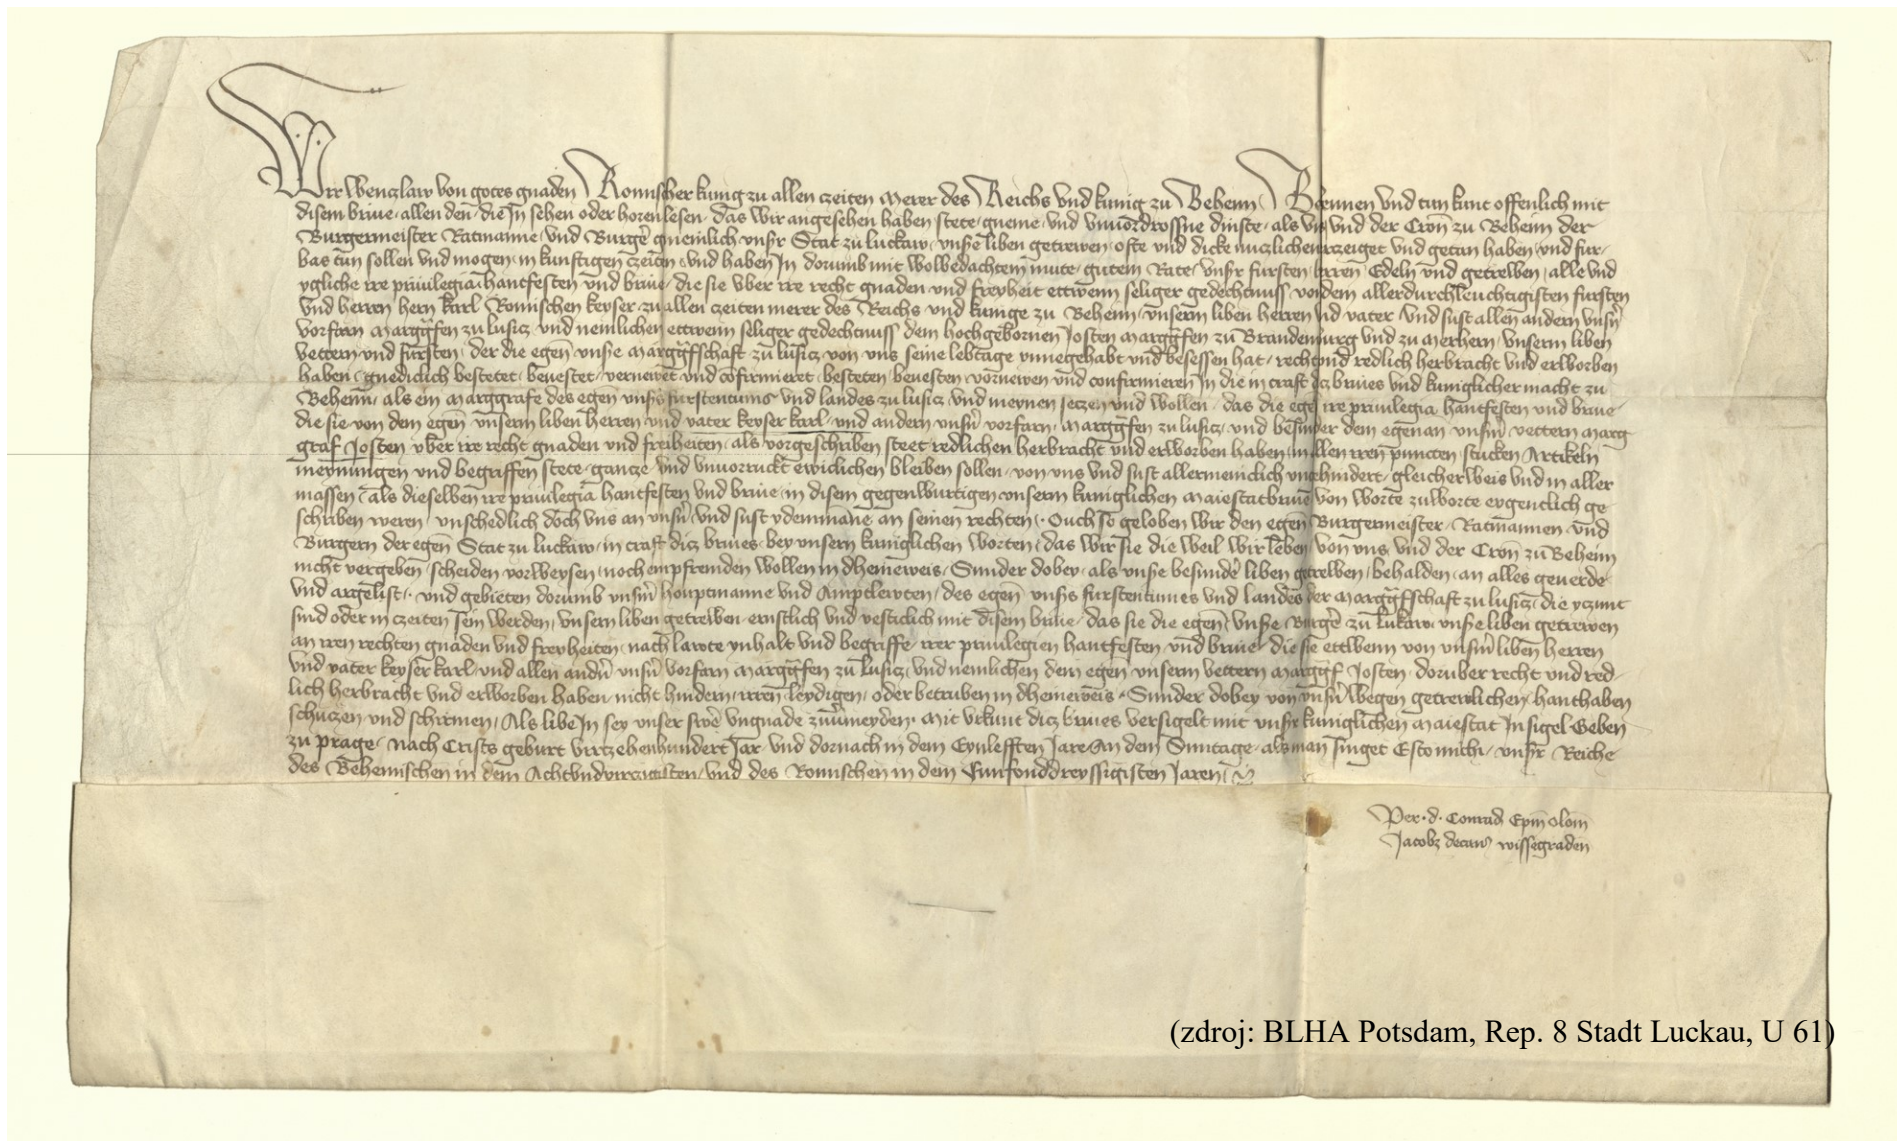 Wir Wenczlaw von gotes gnaden Romischer kunig zu allen czeiten Merer des Reichs vnd kunig zu Behem Bekennen vnd tun kunt offenlich mit
disem briue allen den die In sehen oder horen lesen das wir angesehen haben stete gneme vnd vnuordrossne dinste als vns vnd der Cron zu Behem der
Burgermeister Ratmanne vnd Burger gmeinlich vnsr Stat zu luckaw vnse liben getrewen ofte vnd dicke nuczlichen erzeiget vnd getan haben vnd fur
bas tun sollen vnd mogen in kunftigen czeiten vnd haben In dorumb mit wolbedachtem mute gutem Rate vnsr fursten herren Edeln vnd getrewen alle vnd
ygliche ire priuilegia hantfesten vnd briue die sie vber ire recht gnaden vnd freyheit ettwenn seliger gedechtnuss von dem allerdurchleuchtigisten fursten
vnd herren hern karl Romischen keyser zu allen zeiten merer des Reichs vnd kunige zu Behem vnserm liben herren vnd vater vnd sust allen andern vnsn
vorfarn Marggfen zu lusicz vnd nemlichen ettwenn seliger gedechtnuss dem hochgebornen Josten marggfen zu Brandemburg vnd zu Merhern vnserm liben
vettern vnd fursten der die egen vnse marggfschaft zu lusicz von vns seine lebtage ynnegehabt vnd besessen hat recht vnd redlich herbracht vnd erworben
haben gnediclich bestetet beuestet vernewet vnd confirmieret besteten beuesten vornewen vnd confirmieren In die in craft dicz briues vnd kuniglicher macht zu
Behem als ein marggrafe des egen vnss furstentums vnd landes zu lusicz vnd meynen seczen vnd wollen das die egen ire priuilegia hantfesten vnd briue
die sie von dem egen vnserm liben herren vnd vater keyser karl vnd andern vnsn vorfarn marggfen zu lusicz vnd besunder dem egenan vnsm vettern marg
graf Josten vber ire recht gnaden vnd freiheiten als vorgeschriben steet redlichen herbracht vnd erworben haben in allen iren puncten stucken Artikeln
meynungen vnd begriffen stete gancze vnd vnuorruckt ewiclichen bleiben sollen von vns vnd sust allermeinclich vngehindert gleicherweis vnd in aller
massen als dieselben ire priuilegia hantfesten vnd briue in disem gegenwurtigen vnserm kuniglichen maiestatbriue von worte zu worte eygentlich ge
schriben weren vnschedlich doch vns an vnsn vnd sust ydermanne an seinen rechten Ouch so geloben wir den egen Burgermeister Ratmannen vnd
Burgern der egen Stat zu luckaw in craft dicz briues bey vnsern kuniglichen worten das wir sie die weil wir leben von vns vnd der Cron zu Behem
nicht vergeben scheiden vorweysen noch empfremden wollen in dheineweis Sunder dobey als vnse besunder liben getrewen behalden an alles geuerde
vnd argelist vnd gebieten dorumb vnsm houptmanne vnd Amptlewten des egen vnss furstentumes vnd landes der marggfschaft zu lusicz die yczunt
sind oder in czeiten sein werden vnsern liben getrewen ernstlich vnd vesticlich mit disem briue das sie die egen vnse Burger zu Lukaw vnse liben getrewen
an iren rechten gnaden vnd freyheiten nach lawte ynhalt vnd begriffe irer priuilegien hantfesten vnd briue die sie ettwenn von vnsm liben herren
vnd vater keyser karl vnd allen andn vnsn vorfarn marggfen zu lusicz vnd nemlichen dem egen vnserm vettern marggf Josten doruber recht vnd red
lich herbracht vnd erworben haben nicht hindern irren leydigen oder betruben in dheineweis Sunder dobey von vnsn wegen getrewlichen hanthaben
schuczen vnd schirmen Als libe In sey vnser swe vngnade zuuormeyden Mit vrkunt dicz briues versigelt mit vnsr kuniglichen maiestat Insigel Geben
zu prage nach Crists geburt virczehenhundert Jar vnd dornach in dem Eynlefften Jare An dem Suntage als man singet Esto michi vnsr Reiche
des Behemischen in dem Achtvndvirczigisten vnd des Romischen in dem Funfunddreyssigisten Jaren
Per d Conrad Epm olom
Jacobz decanus wissegraden
(zdroj: BLHA Potsdam, Rep. 8 Stadt Luckau, U 61)